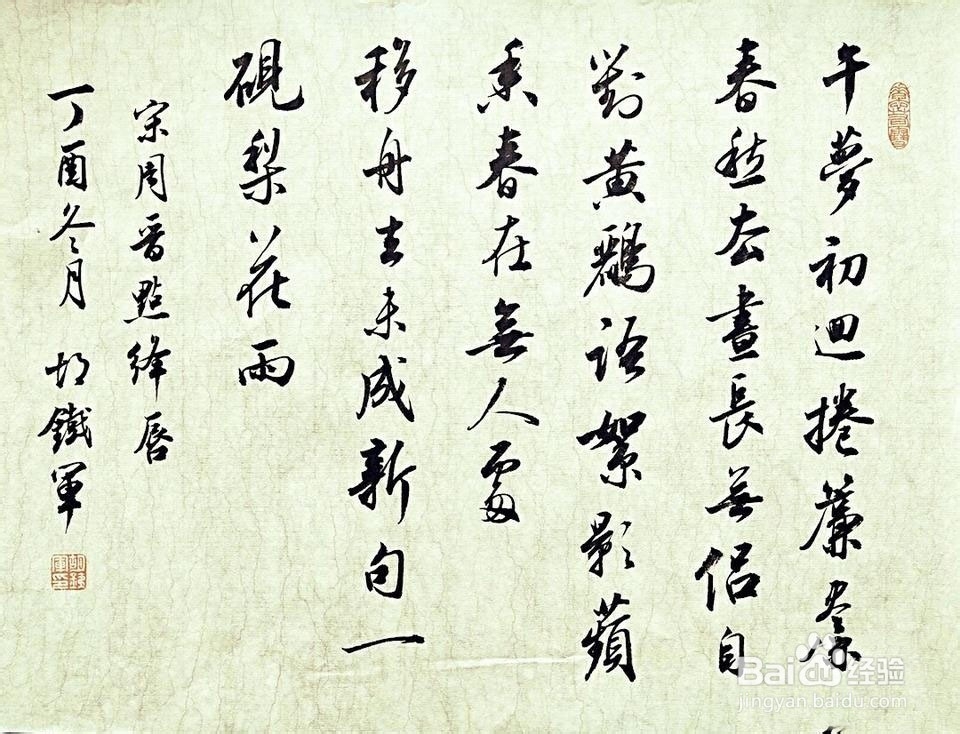 午夢初迴捲簾尽
春愁去晝長無侶自
對黃鸝語絮影蘋
香春在無人處
移舟去未成新句一
硯梨花雨
宋周晋點絳唇
丁酉冬月 胡鐵軍
Baidu 经验
jingyan.baidu.com